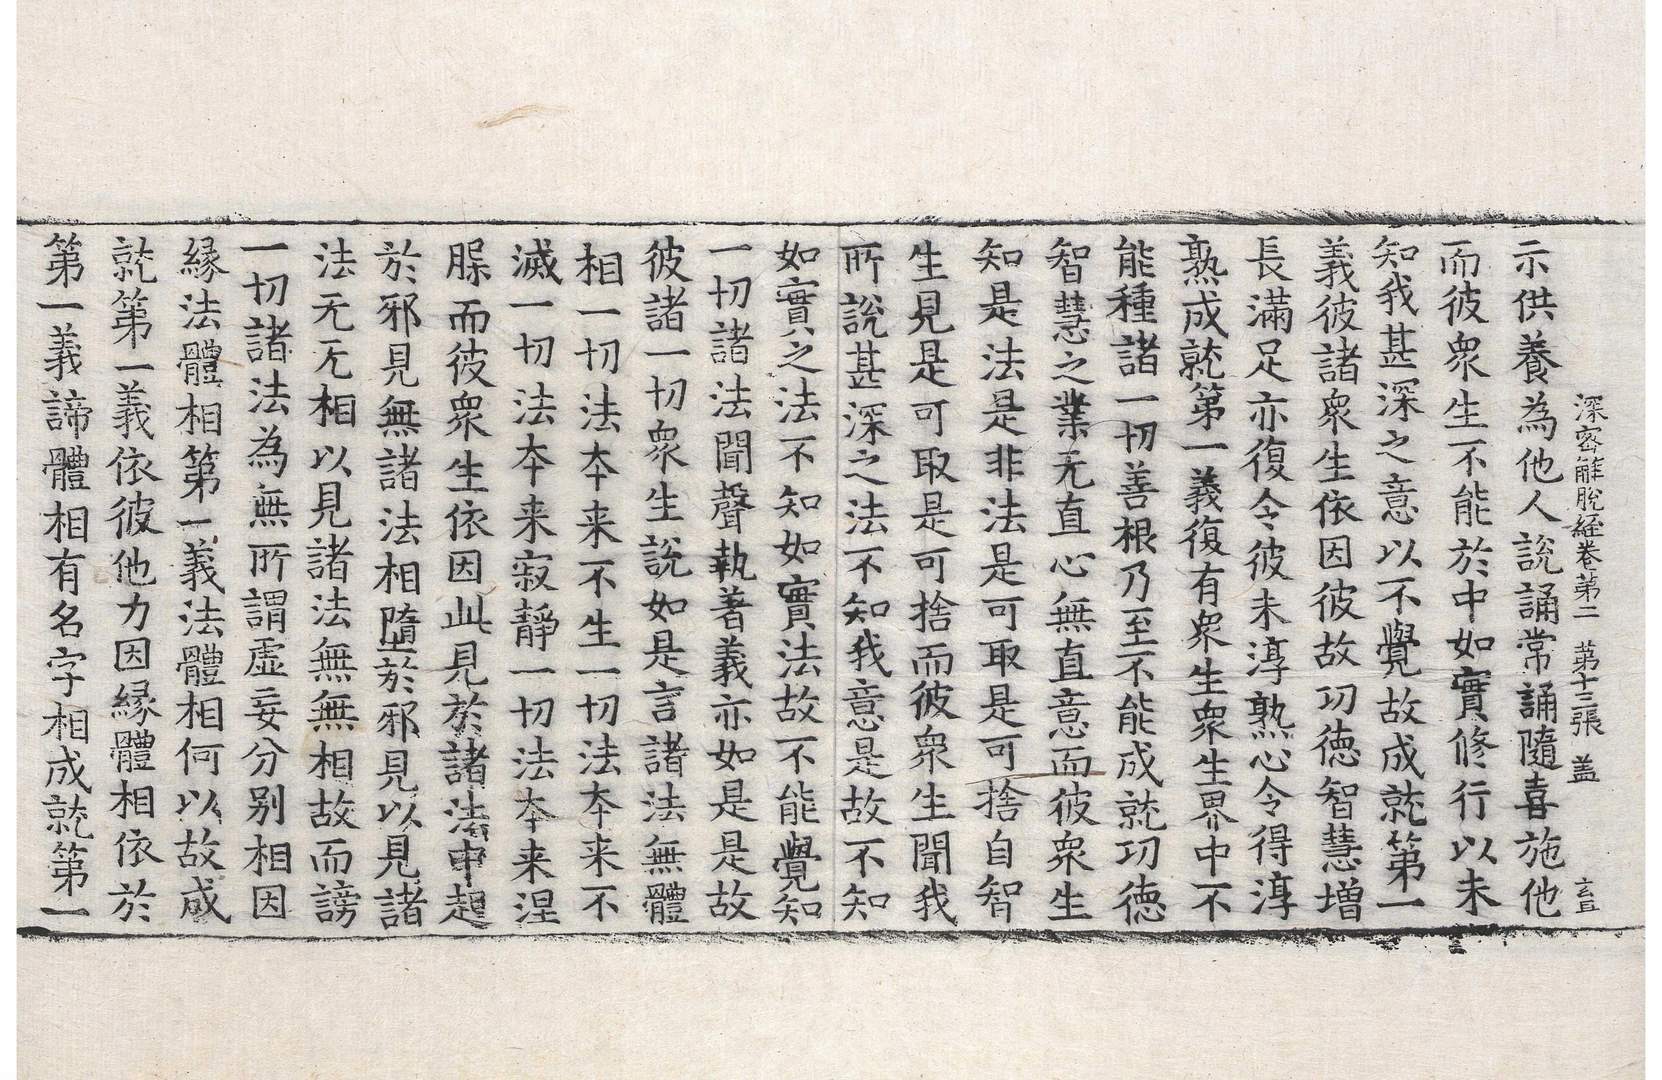 深密解脫経卷第二　第十三張　盖　玄旦
示供養為他人說誦常誦隨喜施他
而彼衆生不能於中如實修行以未
知我甚深之意以不覺故成就第一
義彼諸衆生依因彼故功德智慧增
長滿足亦復令彼未淳熟心令得淳
熟成就第一義復有衆生衆生界中不
能種諸一切善根乃至不能成就功德
智慧之業无直心無直意而彼衆生
知是法是非法是可取是可捨自智
生見是可取是可捨而彼衆生聞我
所說甚深之法不知我意是故不知
如實之法不知如實法故不能覺知
一切諸法聞聲執著義亦如是是故
彼諸一切衆生說如是言諸法無體
相一切法本来不生一切法本来不
滅一切法本来寂靜一切法本来涅
脲而彼衆生依因此見於諸法中起
於邪見無諸法相墮於邪見以見諸
法无无相以見諸法無無相故而謗
一切諸法為無所謂虛妄分别相因
縁法體相第一義法體相何以故成
就第一義依彼他力因縁體相依於
第一義諦體相有名字相成就第一